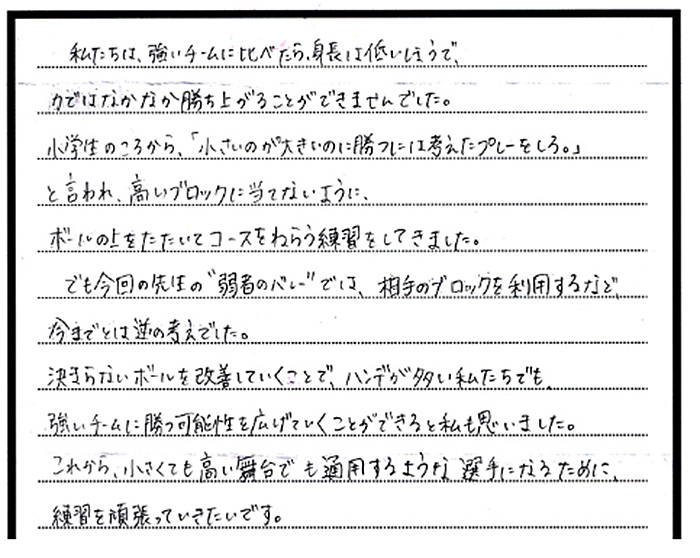 私たちは、強いチームに比べたら、身長は低いほうで、
力ではなかなか勝ち上がることができませんでした。
小学生のころから、「小さいのが大きいのに勝つには考えたプレーをしろ。」
と言われ、高いブロックに当てないように、
ボールの上をたたいてコースをねらう練習をしてきました。
でも今回の先生の"弱者のバレー"では、相手のブロックを利用するなど、
今までとは逆の考えでした。
決まらないボールを改善していくことで、ハンデが多い私たちでも、
強いチームに勝つ可能性を広げていくことができると私も思いました。
これから、小さくても高い舞台でも通用するような選手になるために、
練習を頑張っていきたいです。